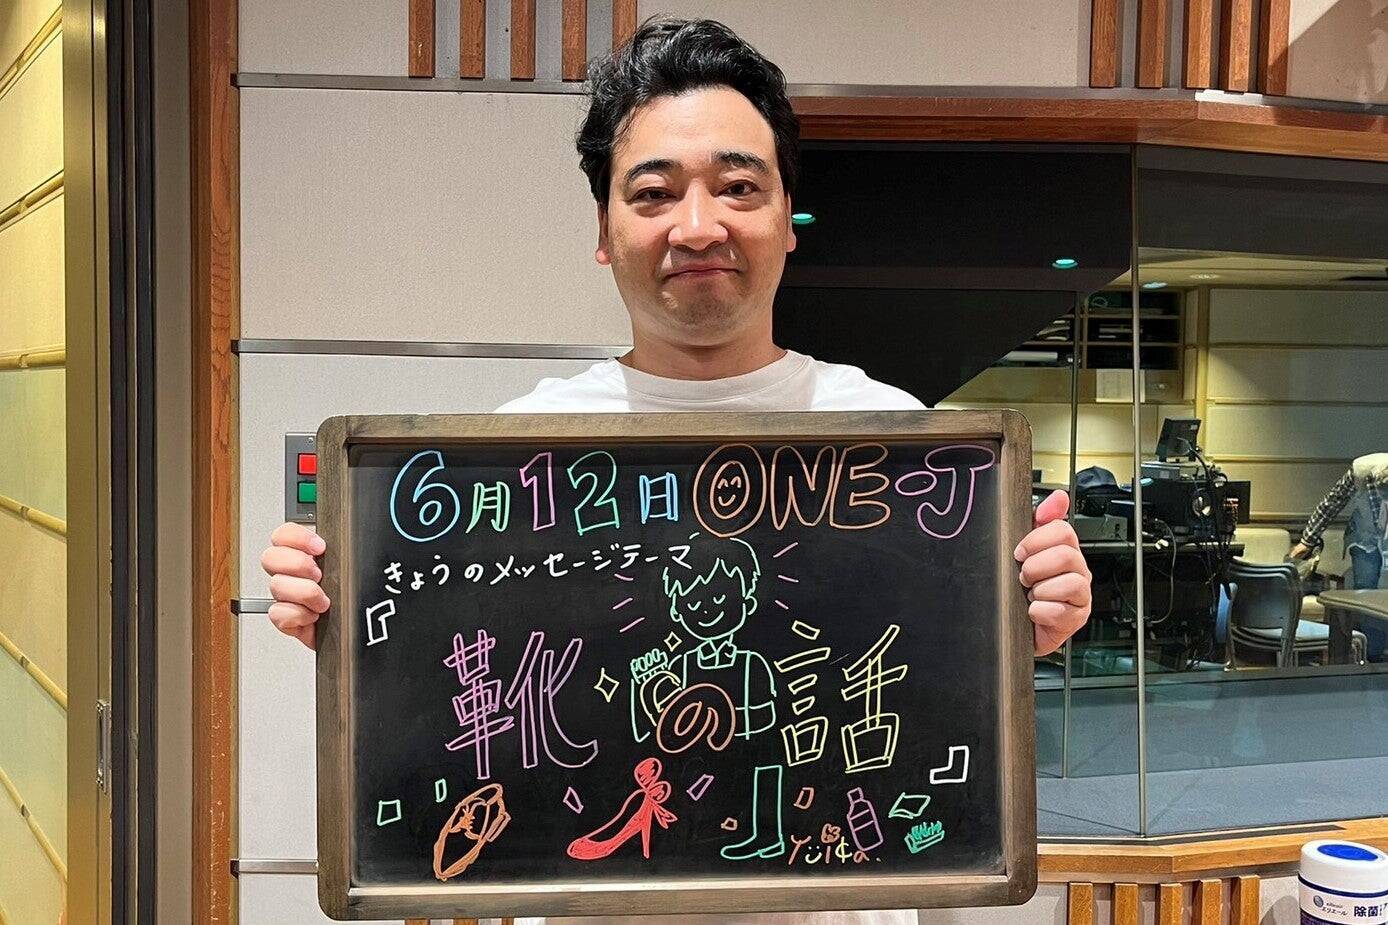 6月12日 ONE-J
きょうのメッセージテーマ
『靴の話』
Yuika.
エリエール
除菌